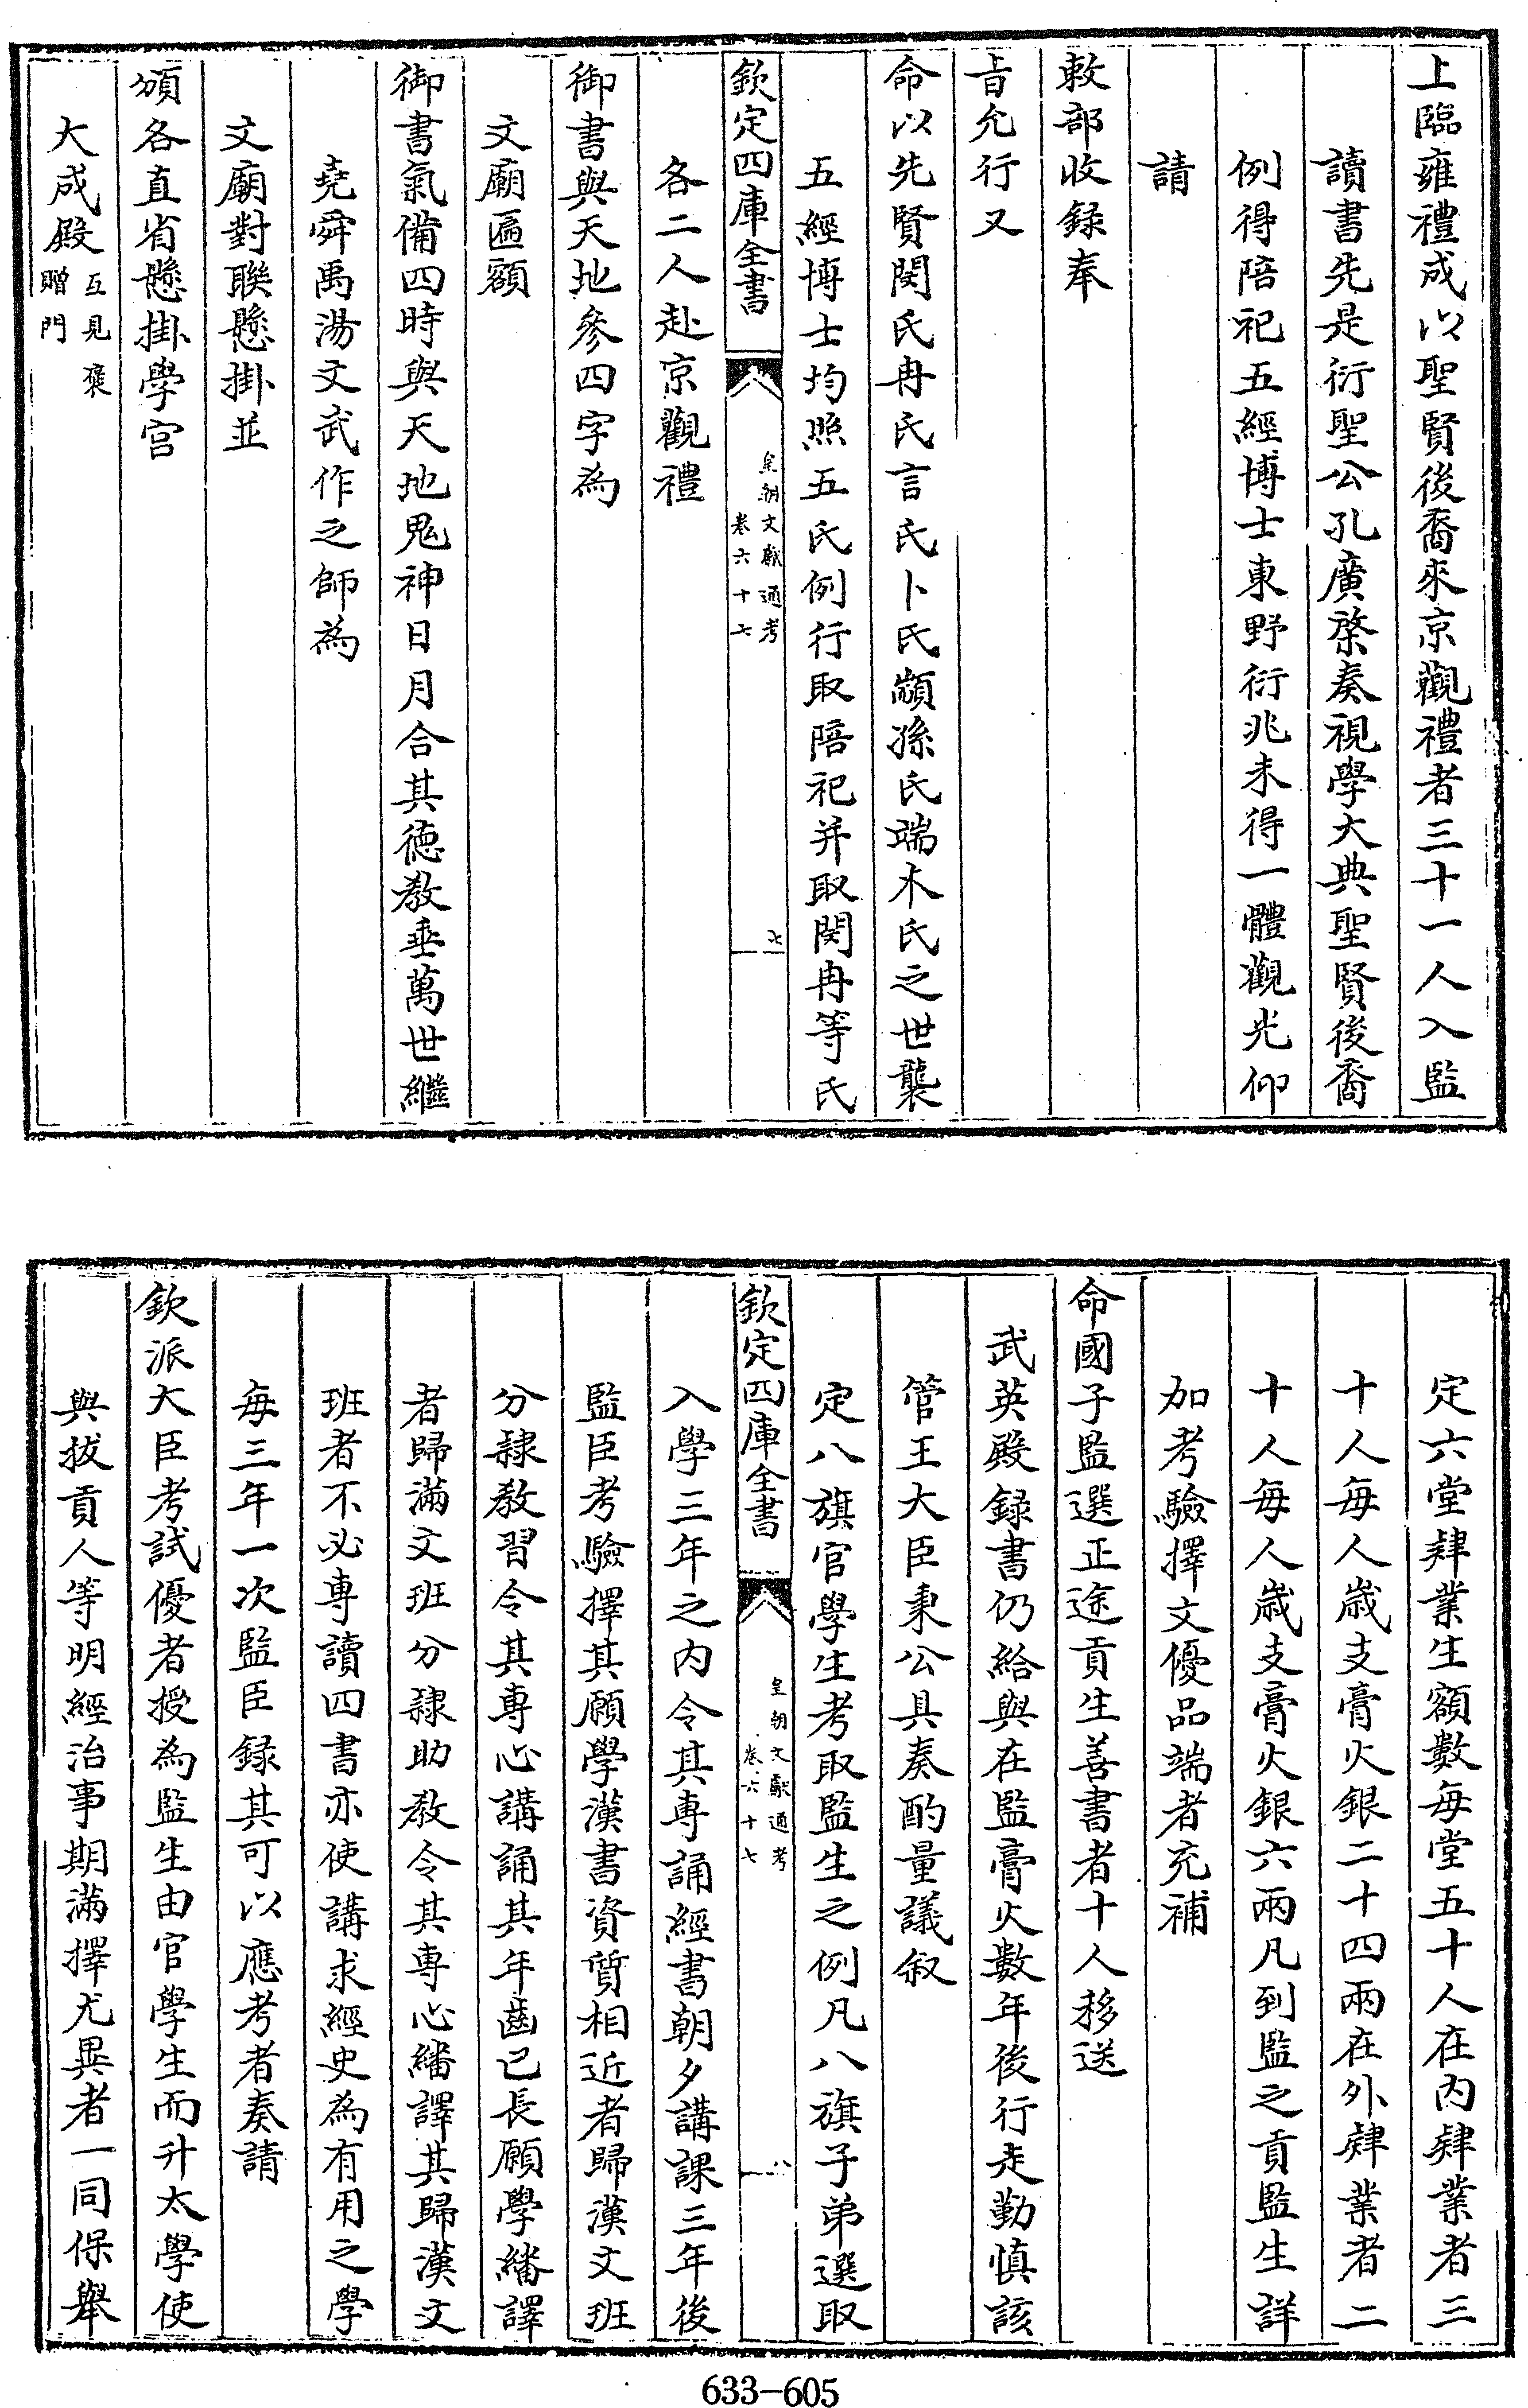 上臨雍禮成以聖賢後裔來京觀禮者三十一人入監
讀書先是衍聖公孔廣棨奏視學大典聖賢後裔
例得陪祀五經博士東野衍兆未得一體觀光仰
請
敕部收録奉
旨允行又
命以先賢閔氏冉氏言氏卜氏顓孫氏端木氏之世襲
五經博士均照五氏例行取陪祀并取閔冉等氏
欽定四庫全書
皇朝文獻通考
卷六十七
七
各二人赴京觀禮
御書與天地參四字為
文廟匾額
御書氣備四時與天地鬼神日月合其德教垂萬世繼
堯舜禹湯文武作之師為
文廟對聯懸掛並
頒各直省懸掛學宫
大成殿互見褒
贈門
定六堂肄業生額數每堂五十人在内肄業者三
十人每人歲支膏火銀二十四兩在外肄業者二
十人每人歲支膏火銀六兩凡到監之貢監生詳
加考驗擇文優品端者充補
命國子監選正途貢生善書者十人移送
武英殿録書仍給與在監膏火數年後行走勤慎該
管王大臣秉公具奏酌量議叙
定八旗官學生考取監生之例凡八旗子弟選取
欽定四庫全書
皇朝文獻通考
卷六十七
八
入學三年之内令其専誦經書朝夕講課三年後
監臣考驗擇其願學漢書資質相近者歸漢文班
分隸教習令其専心講誦其年齒已長願學繙譯
者歸滿文班分隸助教令其専心繙譯其歸漢文
班者不必専讀四書亦使講求經史為有用之學
每三年一次監臣録其可以應考者奏請
欽派大臣考試優者授為監生由官學生而升太學使
與拔貢人等明經治事期滿擇尤異者一同保舉
633-605